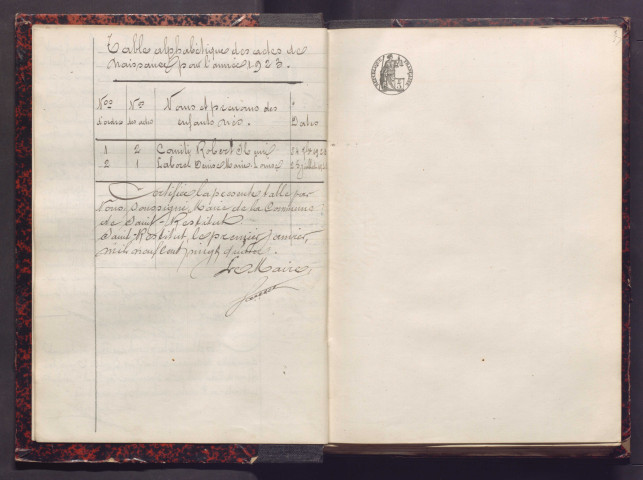 Table alphabétique des actes de
naissance pour l'année 1923.
Nos d'ordre
Nos des actes
Noms et prénoms des
enfants nés.
Dates
1 2 Robert
2 1 Laborel Denise Marie Louise 25 juillet
Certifiée la présente table par
Nous, soussigné, Maire de la Commune
de Saint-Restitut.
Saint-Restitut, le premier janvier
mil neuf cent vingt quatre.
Le Maire,